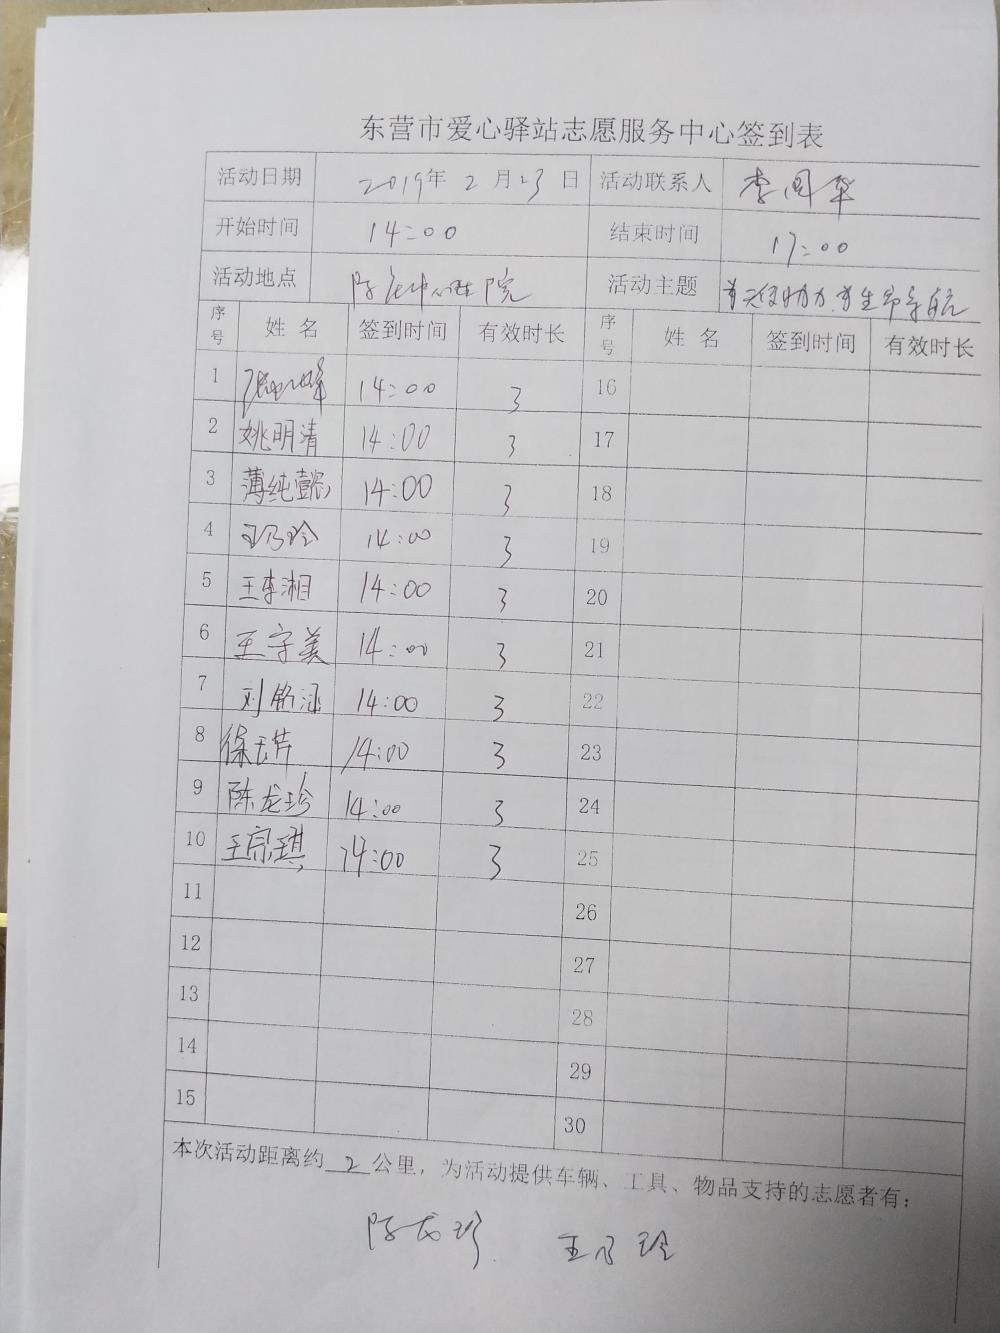 东营市爱心驿站志愿服务中心签到表
活动日期 2019年 2 月 23 日 活动联系人 李国华
开始时间 14:00 结束时间 17:00
活动地点 院 活动主题
序号 姓名 签到时间 有效时长 序号 姓名 签到时间 有效时长
1 14:00 3 16
2 姚明清 14:00 3 17
3 薄纯懿 14:00 3 18
4 王乃玲 14:00 3 19
5 王李湘 14:00 3 20
6 王守美 14:00 3 21
7 刘铭涵 14:00 3 22
8 徐芹 14:00 3 23
9 陈龙珍 14:00 3 24
10 王宗琪 14:00 3 25
11 26
12 27
13 28
14 29
15 30
本次活动距离约 2 公里，为活动提供车辆、工具、物品支持的志愿者有：
陈龙珍 王乃玲